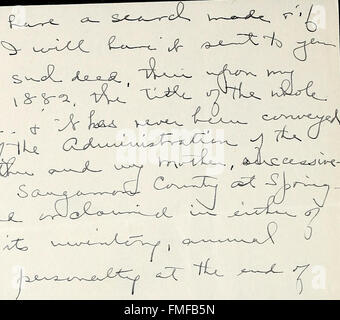 have a search made & if
I will have it sent to you
such deed, then upon my
1882, the title of the whole
& it has never been conveyed
of the Administration of the
ther and my mother, successive-
Sangamon County at Spring-
e or claimed in either of
its inventory, annual
personalty at the end of
alamy stock photo
FMFB5N
www.alamy.com